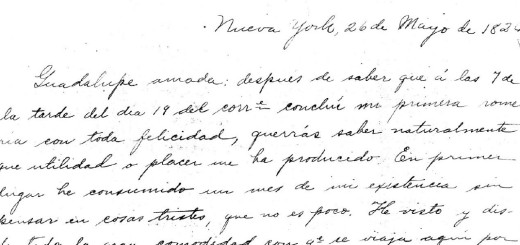 Nueva York, 26 de Mayo de 182
Guadalupe amada: despues de saber que á las 7 de
la tarde del dia 19 del corr.te conclúí mi primera rome
ria con toda felicidad, querrás saber naturalmente
que utilidad o placer me ha producido. En primer
lugar he consumido un mes de mi existencia sin
pensar en cosas tristes, que no es poco. He visto y dis-
toda la gran comodidad con q.e se viaja aquí por